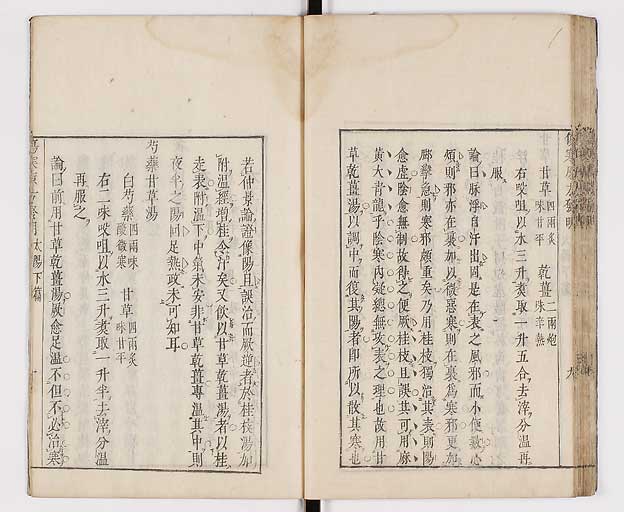 甘草 四兩炙 味甘平 乾薑 二兩炮 味辛熱
右㕮咀以水三升煮取一升五合去滓分溫再
服
論曰脉浮自汗出固是在表之風邪而小便數心
煩則邪亦在裏加以微惡寒則在裏為寒邪更加
脚攣急則寒邪頗重矣乃用桂枝獨治其表則陽
愈虛陰愈無制故得之便厥桂枝且誤其可用麻
黃大青龍乎陰寒內凝總無攻表之理也故用甘
草乾薑湯以調中而復其陽者即所以散其寒也
若仲景論證像陽旦誤治而厥逆者於桂枝湯加
附溫經增桂令汗矣又飲以甘草乾薑湯者以桂
走表附溫下中氣未安非甘草乾薑專溫其中則
夜半之陽回足熱政未可知耳
芍藥甘草湯
白芍藥 四兩味 酸微寒 甘草 四兩炙 味甘平
右二味㕮咀以水三升煮取一升半去滓分溫
再服之
論曰前用甘草乾薑湯厥愈足溫不但不必治寒
太陽下篇